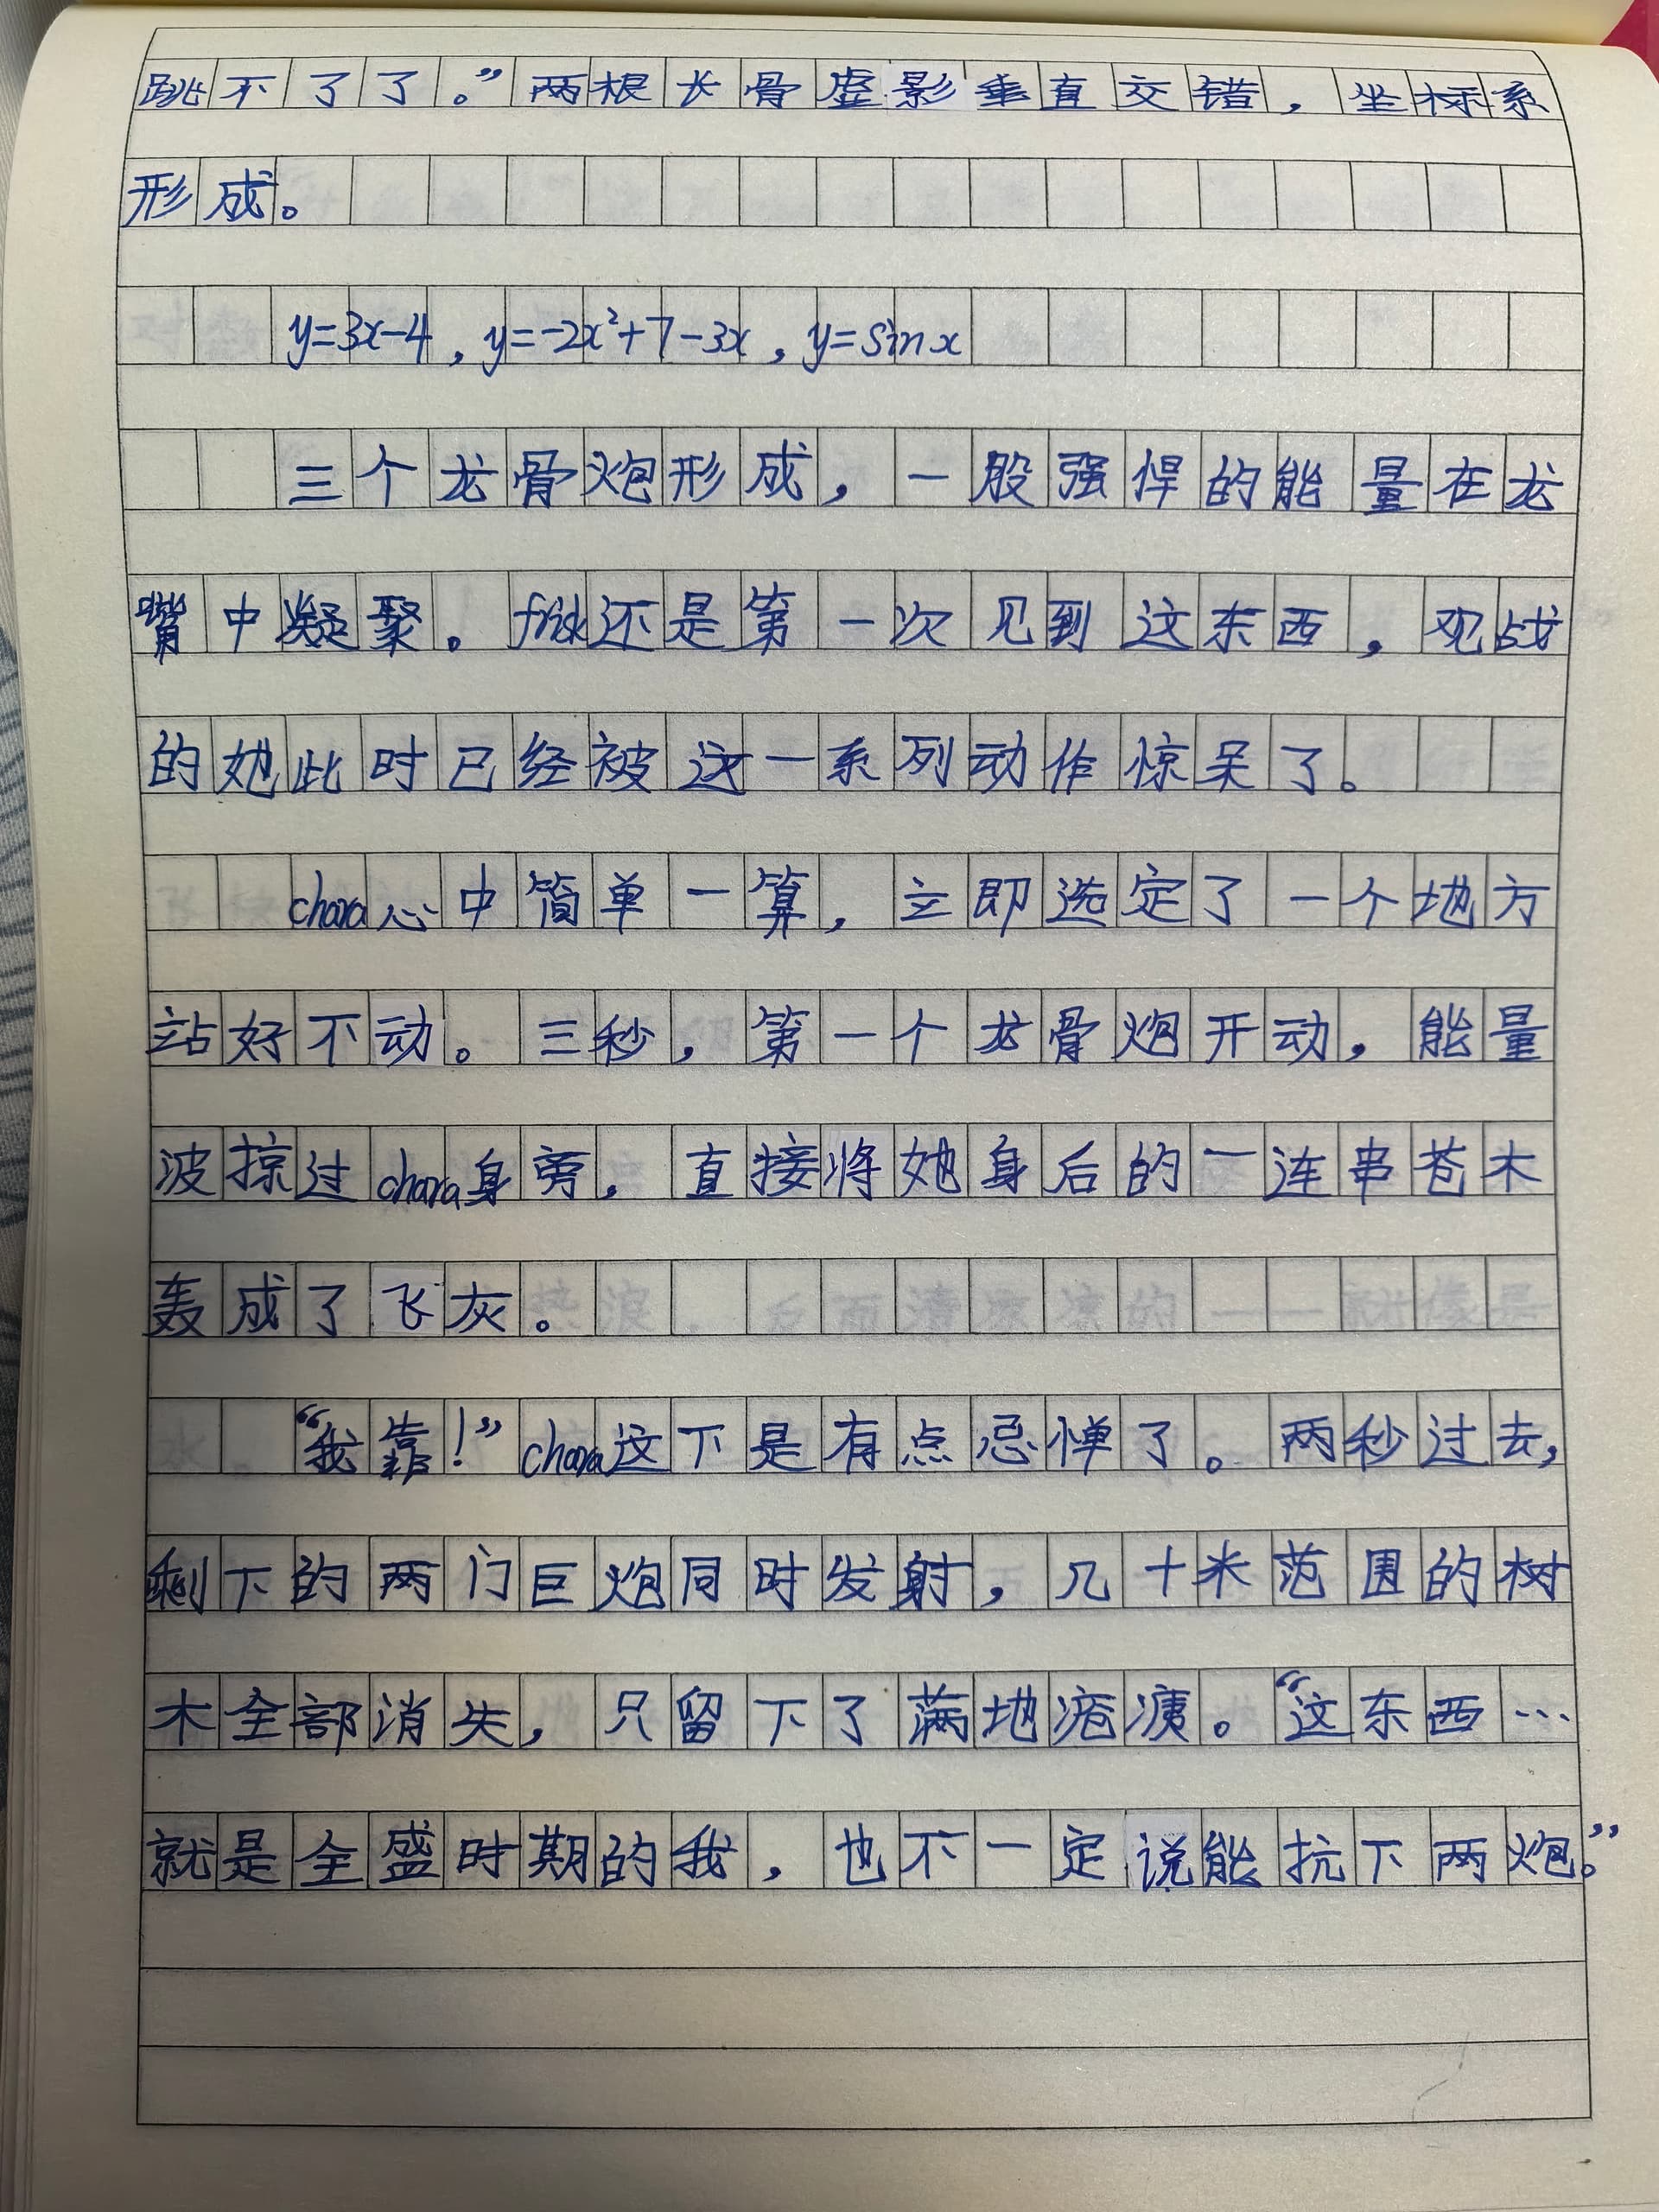 跳不了了。”两根长骨虚影垂直交错，坐标系
形成。
y=3x-4，y=-2x²+7-3x，y=sinx
三个龙骨炮形成，一股强悍的能量在龙
嘴中凝聚。frisk还是第一次见到这东西，观战
的她此时已经被这一系列动作惊呆了。
chara心中简单一算，立即选定了一个地方
站好不动。三秒，第一个龙骨炮开动，能量
波掠过chara身旁，直接将她身后的一连串苍木
轰成了飞灰。
“我靠！”chara这下是有点忌惮了。两秒过去，
剩下的两门巨炮同时发射，几十米范围的树
木全部消失，只留下了满地疮痍。“这东西…
就是全盛时期的我，也不一定说能抗下两炮。”